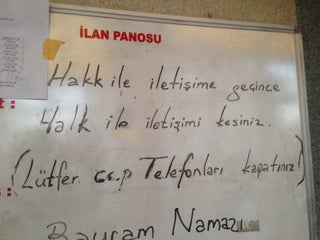 İLAN PANOSU
Hakk ile iletişime geçince
Halk ile iletişimi kesiniz.
(Lütfen cep Telefonları kapatınız!)
Bayram Namazı